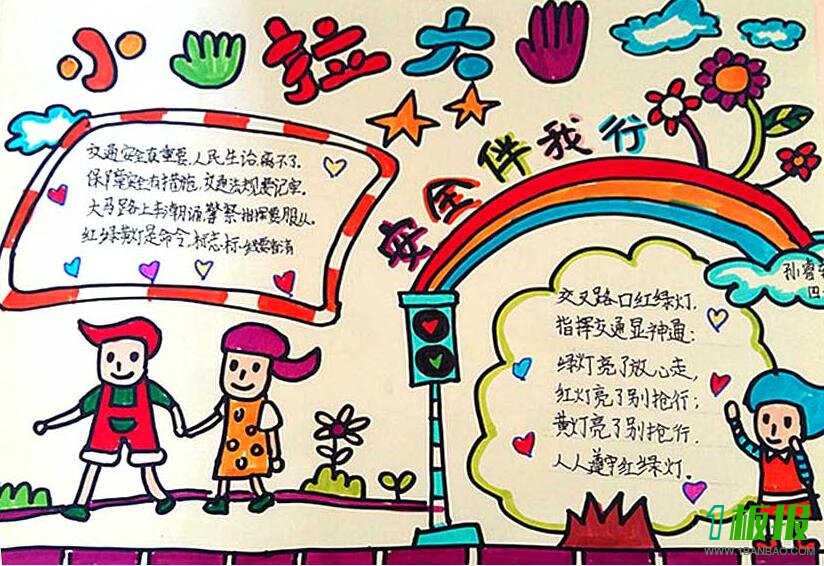 小拉大
安全伴我行
交通安全最重要,人民生活离不了.
保障安全有措施,交通法规要记牢.
大马路上车潮涌,警察指挥要服从.
红绿黄灯是命令,标志标线要看清
孙睿
四
交叉路口红绿灯,
指挥交通显神通:
绿灯亮了放心走,
红灯亮了别抢行;
黄灯亮了别抢行.
人人遵守红绿灯.
1板报
WWW.1BANBAO.COM